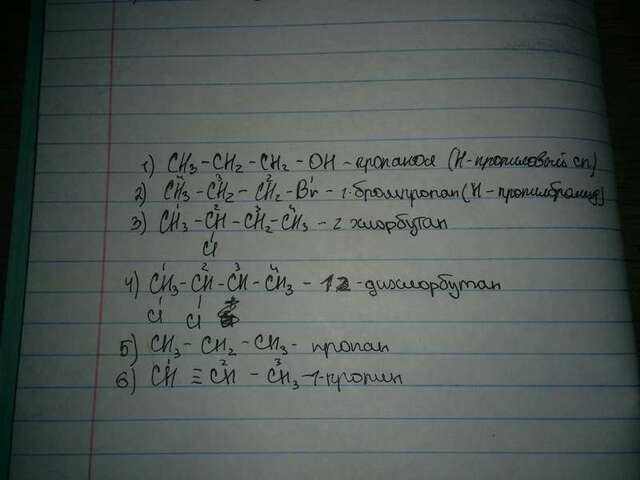 1) CH3-CH2-CH2-OH - пропанол (H-пропиловый сп)
4 3 2 1
2) CH3-CH2-CH2-Br - 1-бромпропан (H-пропилбромид)
1 2 3 4
3) CH3-CH-CH2-CH3 - 2 хлорбутан
Cl
1 2 3 4
4) CH3-CH-CH-CH3 - 12-дихлорбутан
Cl Cl
5) CH3-CH2-CH3- пропан
1 2 3
6) CH≡CH-CH3-1-пропин